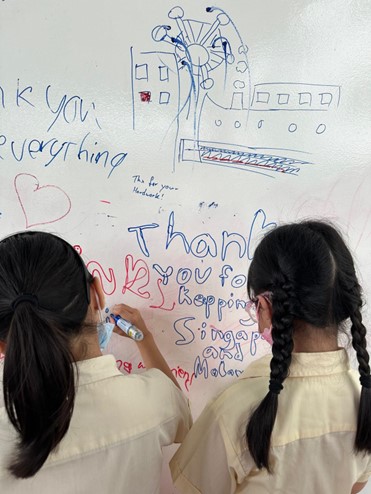 nk you
everything
Thx for your
Hardwork!
Thank
You fo
kepping
Singap
and
Malam